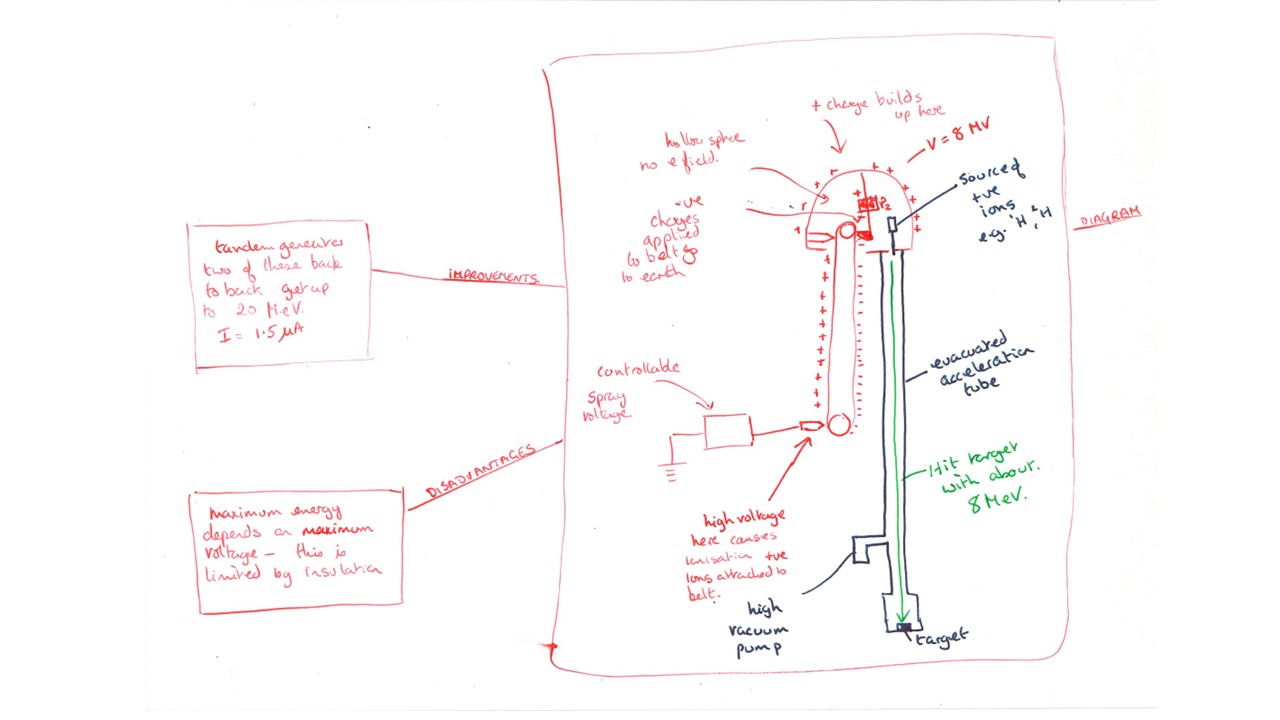 + charge builds
up here
V = 8 MV
hollow sphere
no e field.
-ve
charges
applied
to belt go
to earth
P2
source of
+ve
ions
e.g. ¹H ²H
DIAGRAM
tandem generator
two of these back
to back get up
to 20 MeV.
I = 1.5 μA
IMPROVEMENTS.
evacuated
acceleration
tube
controllable
spray
voltage
Hit target
with about.
8 MeV.
DISADVANTAGES
maximum energy
depends on maximum
voltage – this is
limited by insulation
high voltage
here causes
ionisation +ve
ions attached to
belt.
high
vacuum
pump
target